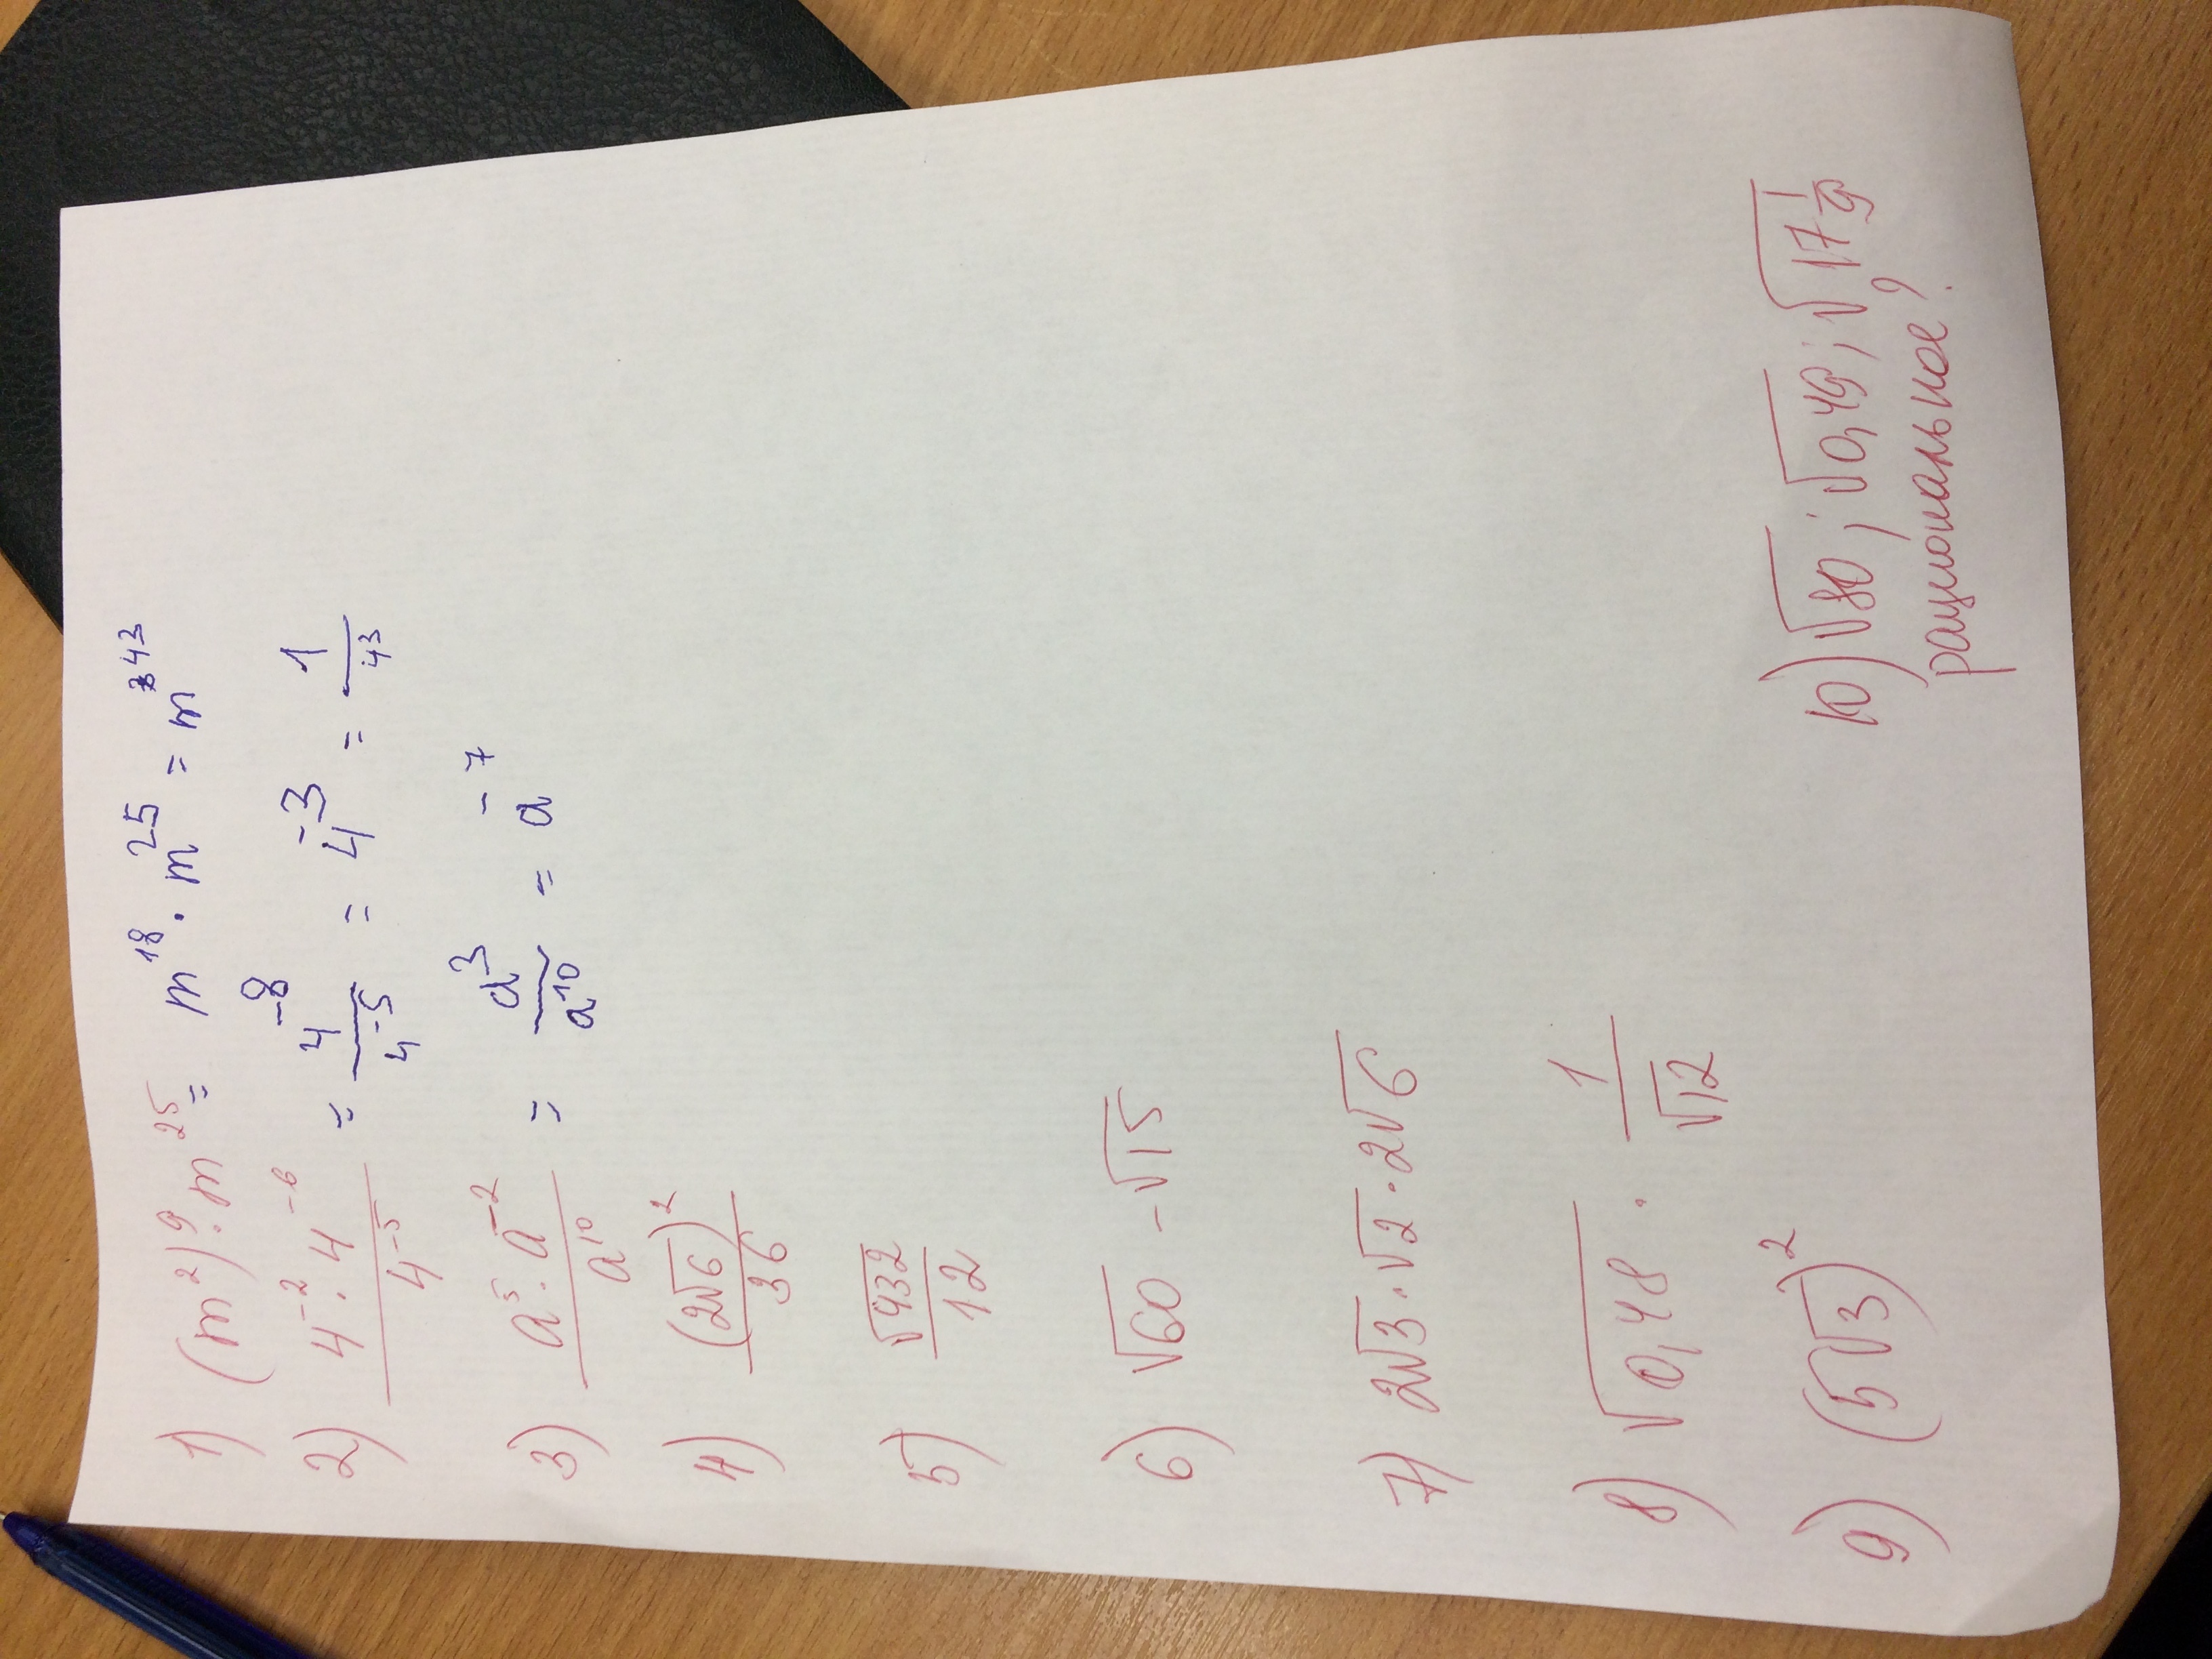 1) (m²)⁹ · m²⁵ = m¹⁸ · m²⁵ = m⁴³
2) 4⁻² · 4⁻⁶ / 4⁻⁵ = 4⁻⁸ / 4⁻⁵ = 4⁻³ = 1 / 4³
3) a⁵ · a⁻² / a¹⁰ = a³ / a¹⁰ = a⁻⁷
4) (2√6)² / 36
5) √432 / 12
6) √60 - √15
7) 2√3 · √2 · 2√6
8) √0,48 · 1 / √12
9) (5√3)²
10) √80 ; √0,49 ; √17 1/9
рациональное?